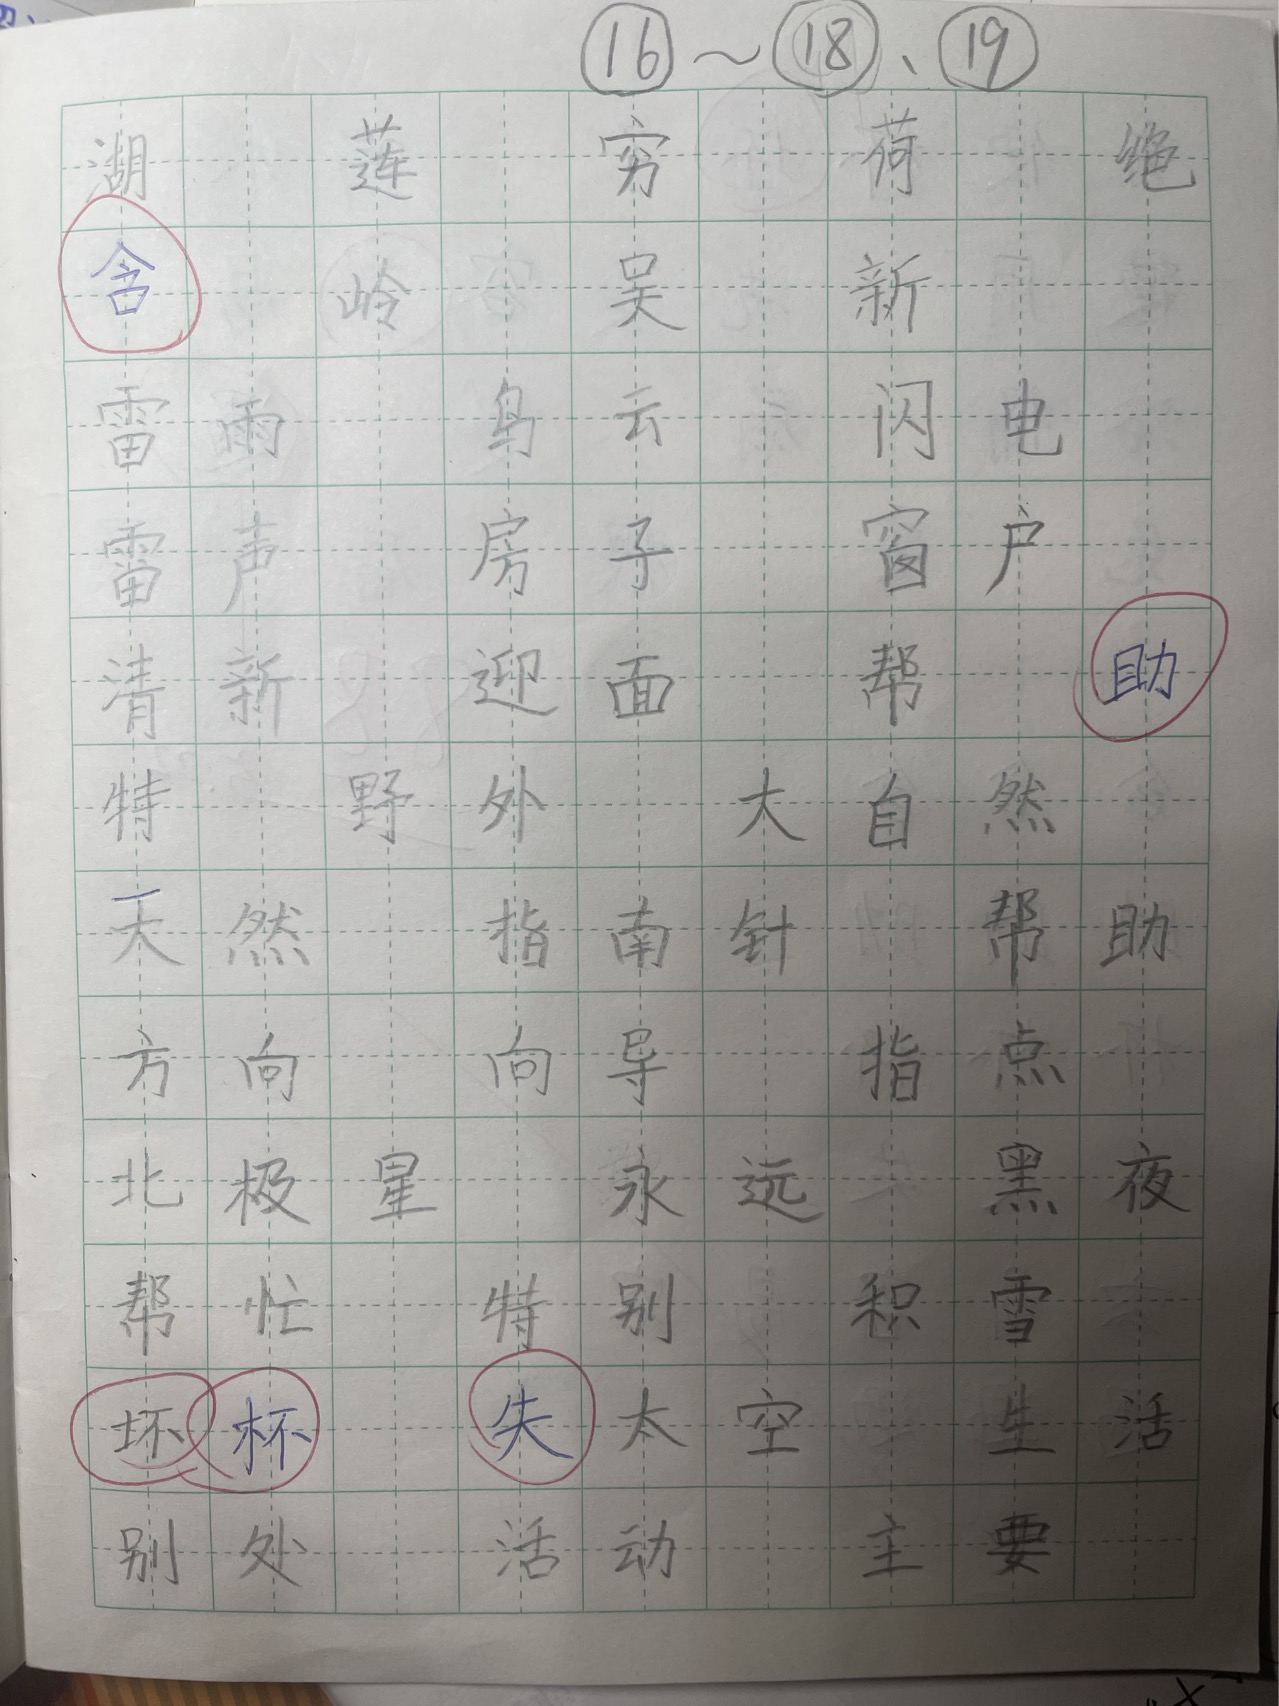 ⑯～⑱、⑲
湖 莲 穷 荷 绝
含 岭 吴 新
雷雨 乌云 闪电
雷声 房子 窗户
清新 迎面 帮 助
特 野外 大自然
天然 指南针 帮助
方向 向导 指点
北极星 永远 黑夜
帮忙 特别 积雪
坏杯 失太空 生活
别处 活动 主要